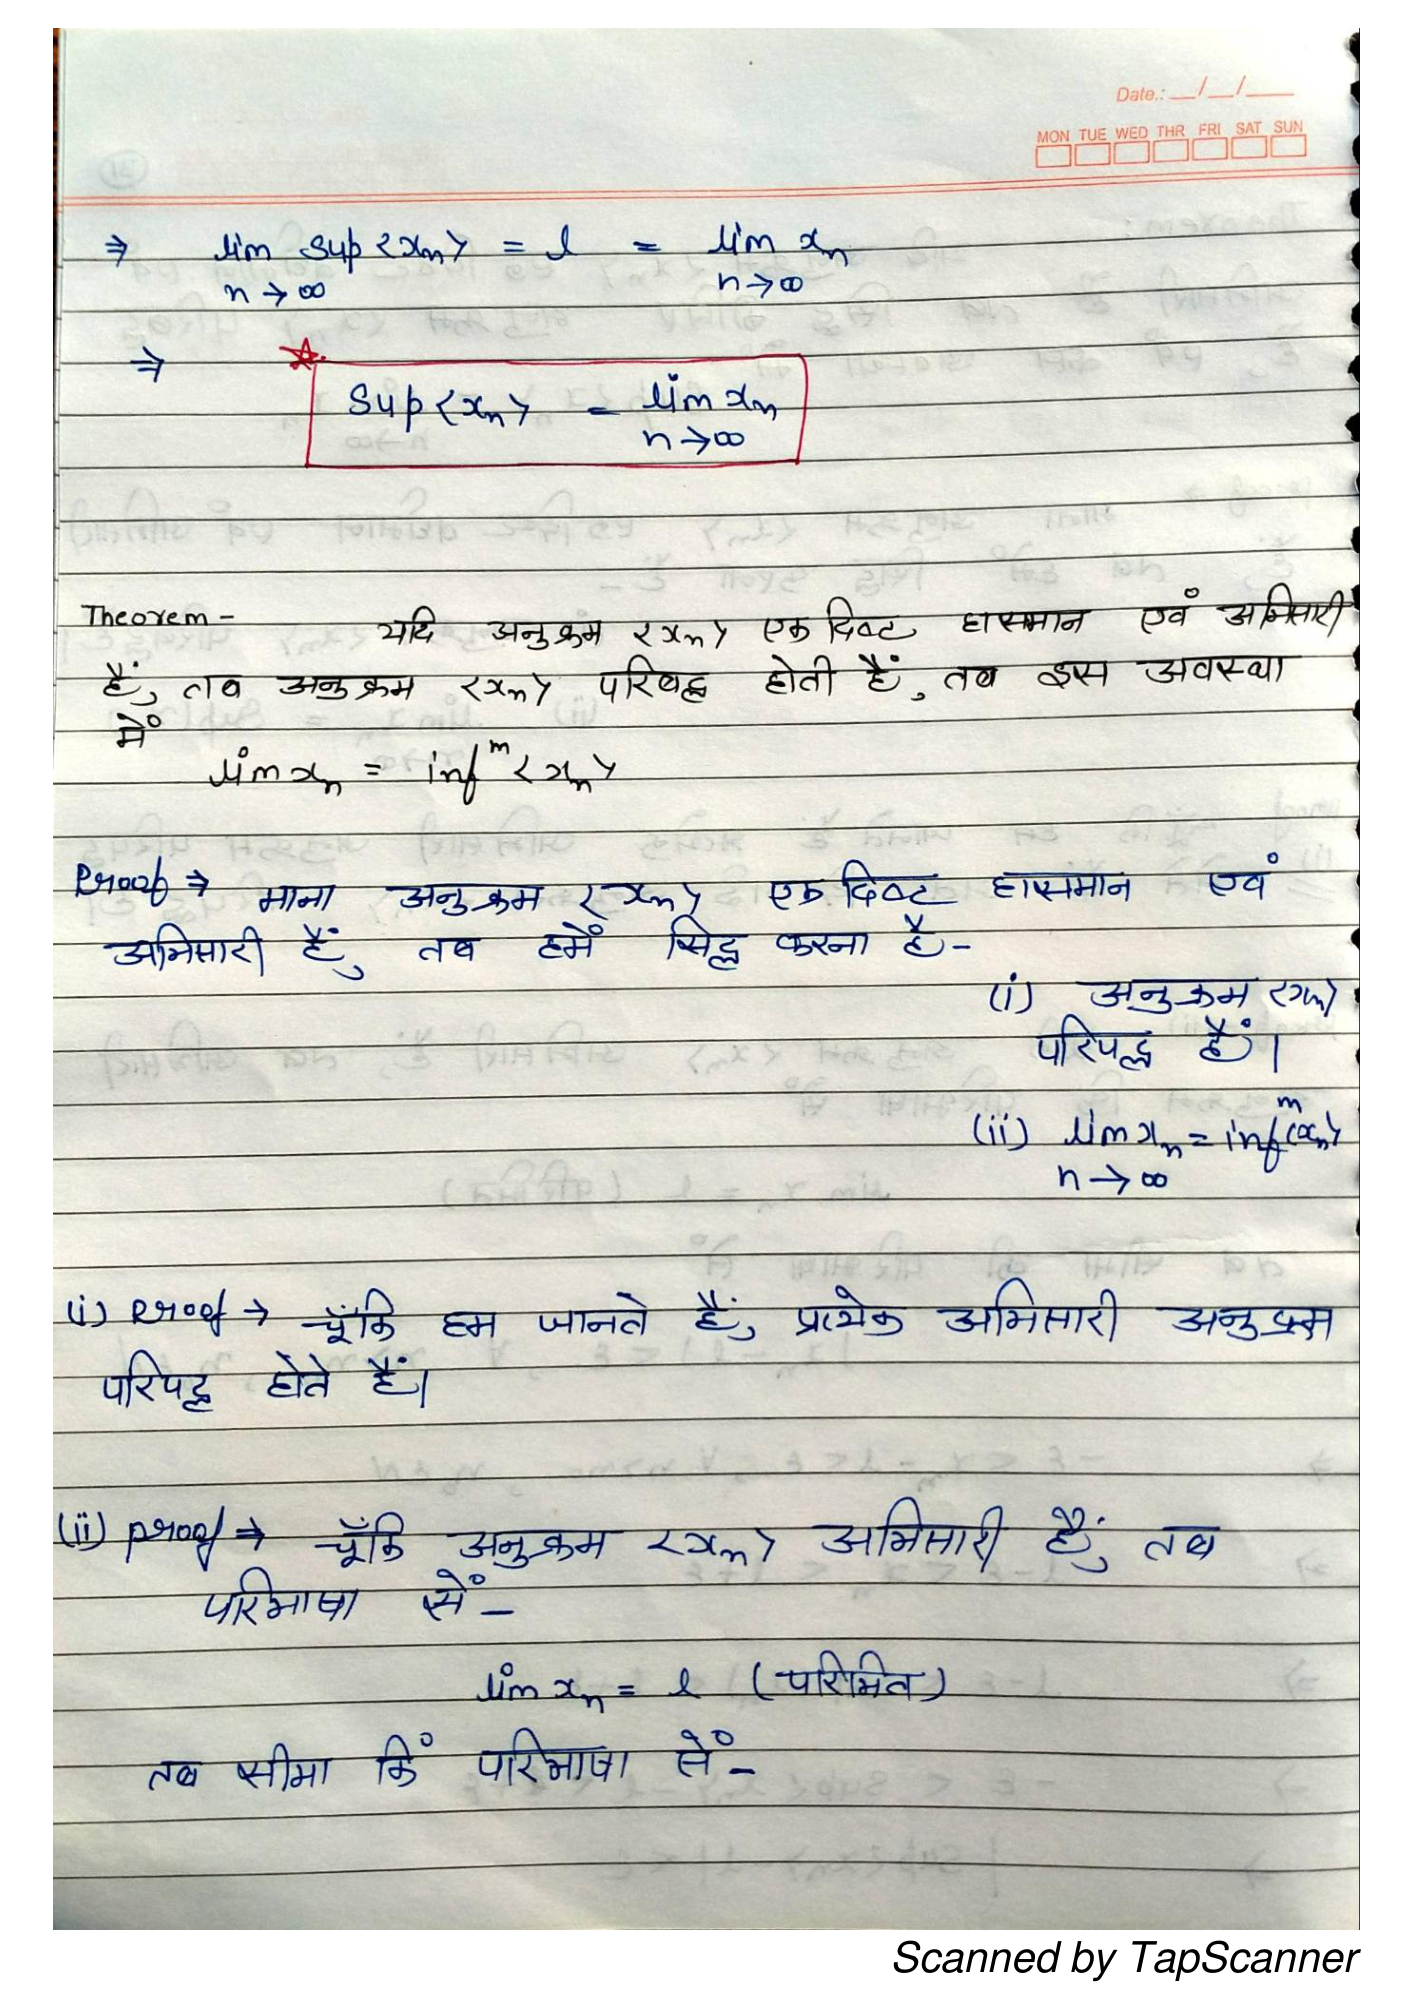 Date.: __/__/__
MON TUE WED THR FRI SAT SUN
⇒ lim sup<xₙ> = l = lim xₙ
n→∞ n→∞
⇒ Sup<xₙ> = lim xₙ
n→∞
Theorem - यदि अनुक्रम <xₙ> एकदिष्ट हासमान एवं अभिसारी
हैं, तब अनुक्रम <xₙ> परिबद्ध होती हैं, तब इस अवस्था
में
lim xₙ = infᵐ <xₙ>
Proof ⇒ माना अनुक्रम <xₙ> एकदिष्ट हासमान एवं
अभिसारी हैं, तब हमें सिद्ध करना है-
(i) अनुक्रम <xₙ>
परिपद्ध हैं।
(ii) lim xₙ = infᵐ<xₙ>
n→∞
(i) Proof → चूँकि हम जानते हैं, प्रत्येक अभिसारी अनुक्रम
परिपद्ध होते हैं।
(ii) proof → चूँकि अनुक्रम <xₙ> अभिसारी हैं, तब
परिभाषा सें-
lim xₙ = l (परिमित)
तब सीमा किं परिभाषा सें-
Scanned by TapScanner